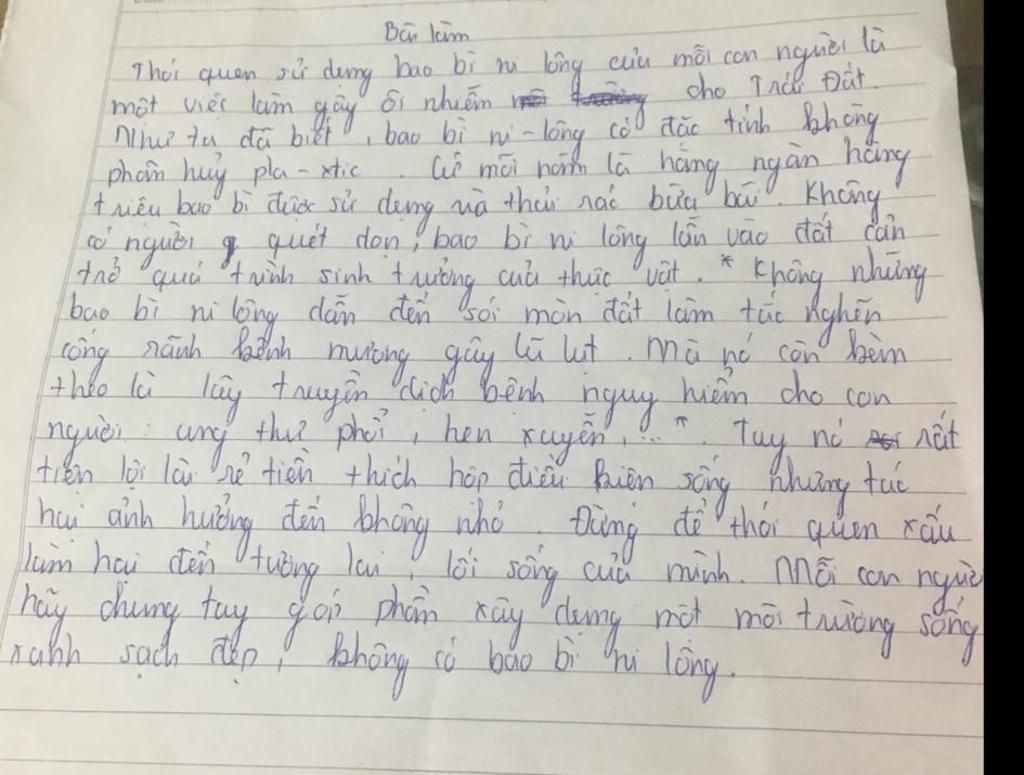 Bài làm
Thói quen sử dụng bao bì ni lông của mỗi con người là
một việc làm gây ôi nhiễm cho Trái Đất.
Như ta đã biết, bao bì ni-lông có đặc tính không
phân huỷ pla-xtic. Cứ mỗi năm là hàng ngàn hàng
triệu bao bì được sử dụng và thải rác bừa bãi. Không
có người quét dọn, bao bì ni lông lẫn vào đất cản
trở quá trình sinh trưởng của thực vật. * Không những
bao bì ni lông dẫn đến sói mòn đất làm tắc nghẽn
cống rãnh kênh mương gây lũ lụt. Mà nó còn kèm
theo là lây truyền dịch bệnh nguy hiểm cho con
người: ung thư phổi, hen xuyễn, ... *. Tuy nó rất
tiện lợi là rẻ tiền thích hợp điều kiện sống nhưng tác
hại ảnh hưởng đến không nhỏ. Đừng để thói quen xấu
làm hại đến tương lai, lối sống của mình. Mỗi con người
hãy chung tay góp phần xây dựng một môi trường sống
xanh sạch đẹp, không có bao bì ni lông.